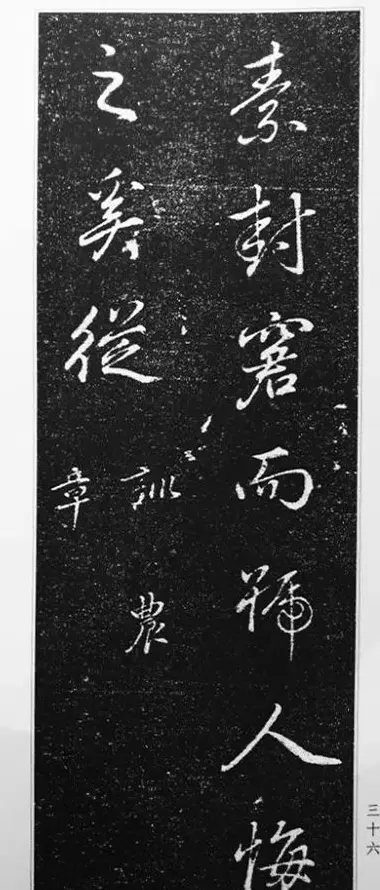 素封窘而號人悔
之奚從
訓農
章
三十六